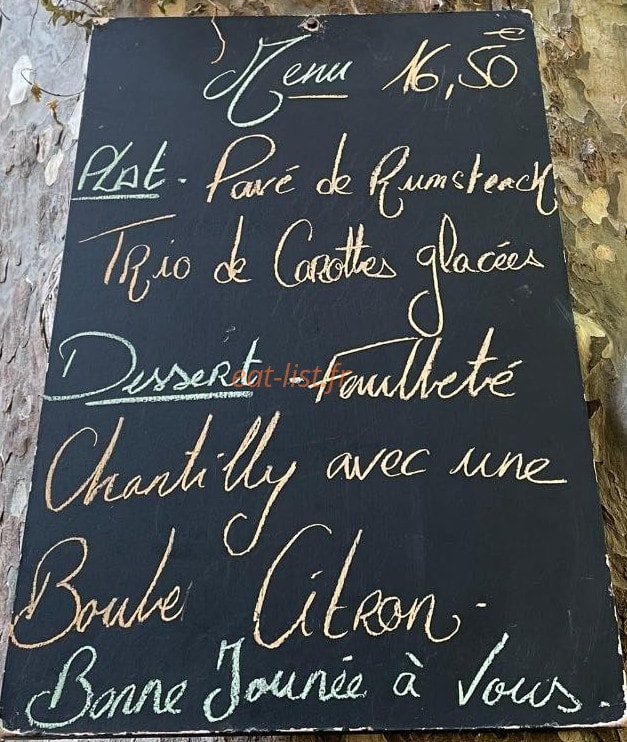 Menu 16,50€
Plat - Pavé de Rumsteack
Trio de Carottes glacées
Dessert - Faulleté
Chantilly avec une
Boule Citron -
Bonne Jounée à Vous.
eat-list.fr